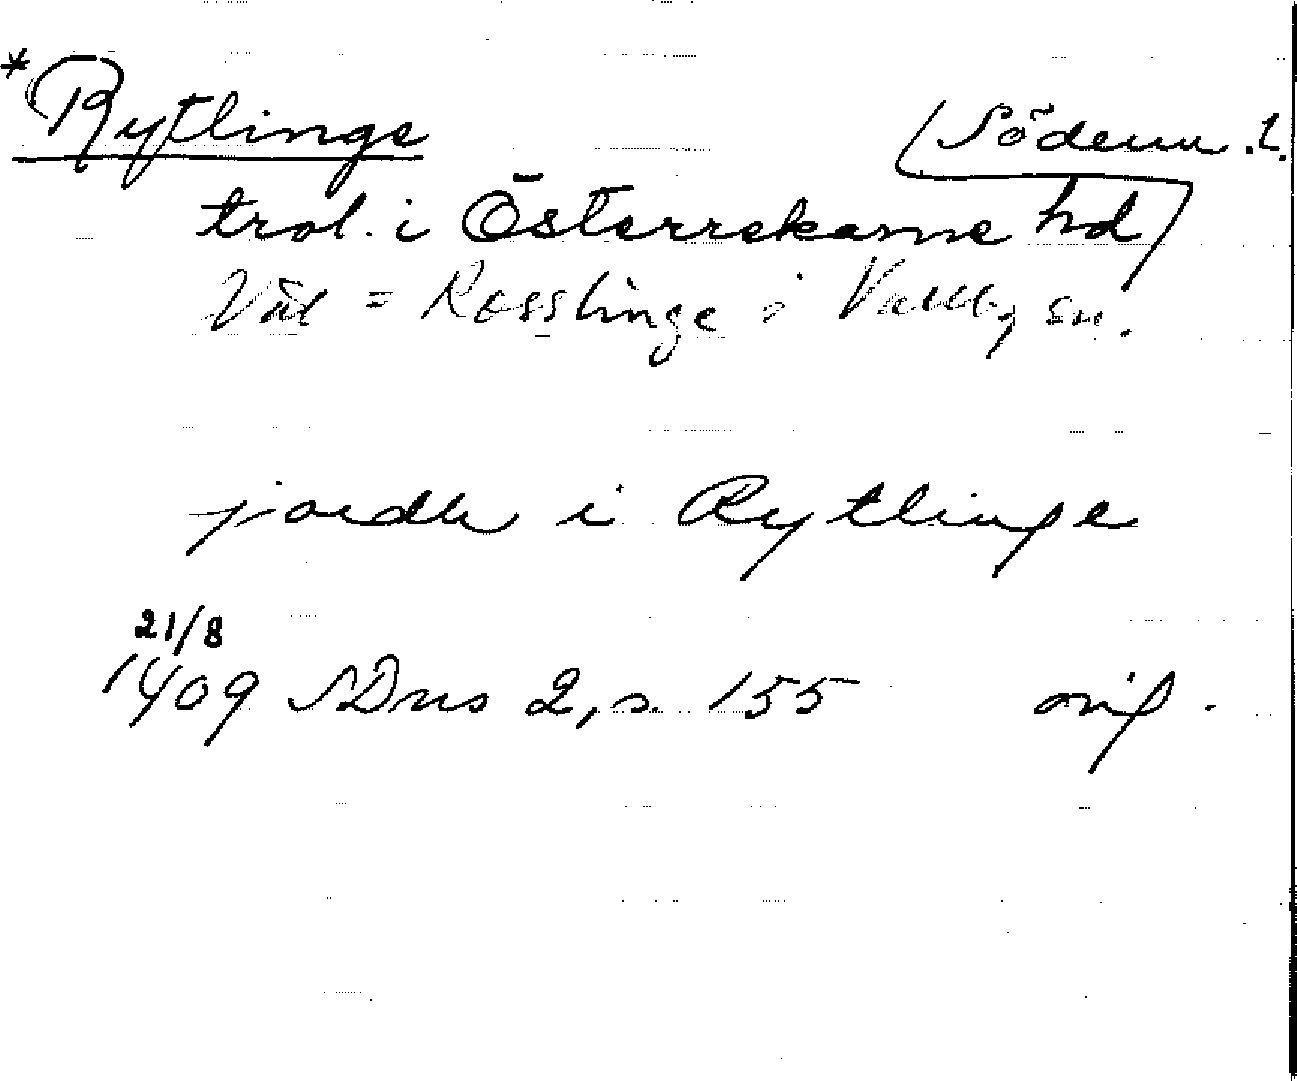 *Rytlinge (Söderm. l.
trol. i Österrekarne hd)
Väl = Rosslinge i Vallby sn.
jordh i Rytlinge
21/8
1409 SDns 2, s. 155 orig.